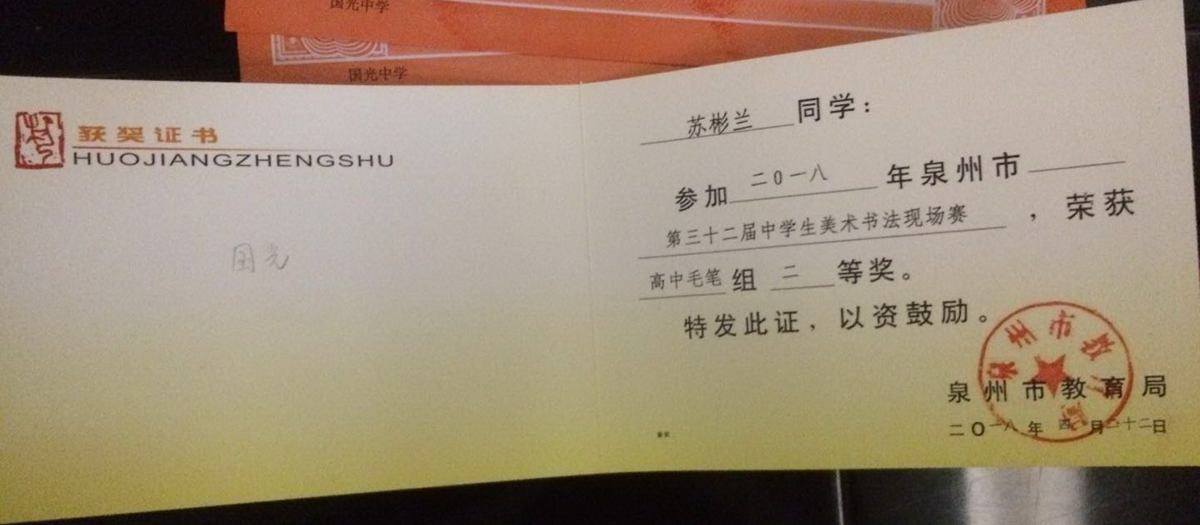 国光中学
国光中学
获奖证书
HUOJIANGZHENGSHU
国光
苏彬兰 同学：
参加 二0一八 年泉州市
第三十二届中学生美术书法现场赛 ，荣获
高中毛笔 组 二 等奖。
特发此证，以资鼓励。
泉州市教育局
泉州市教育局
二〇一八年 四 月二十二日